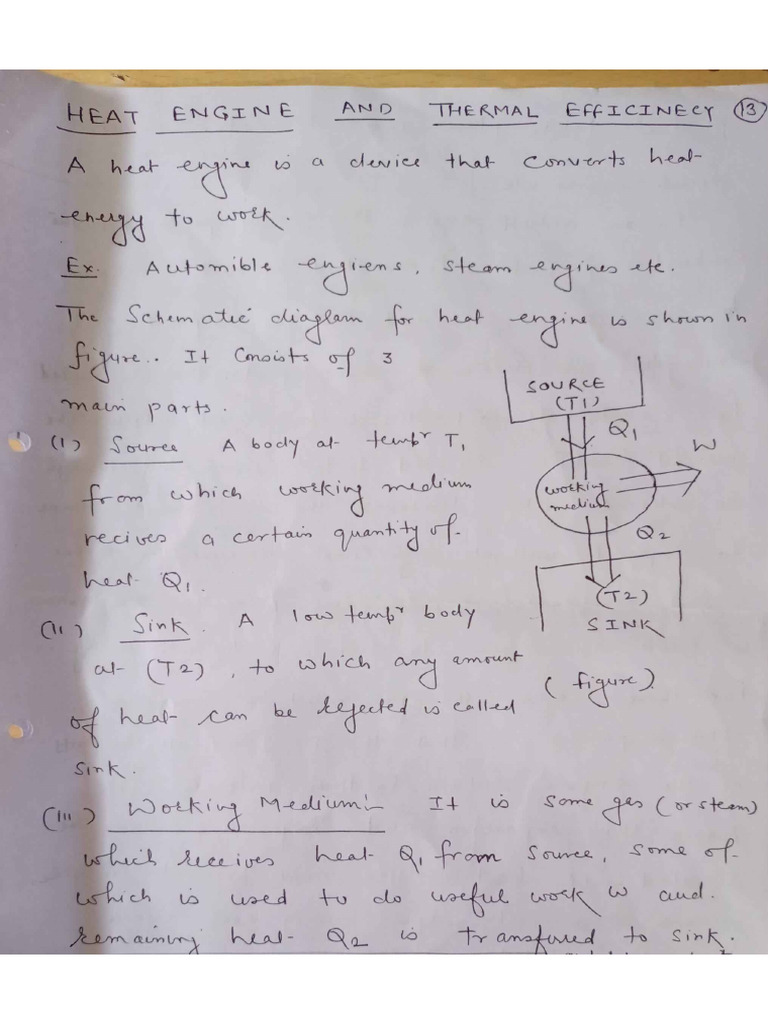 HEAT ENGINE AND THERMAL EFFICINECY 13
A heat engine is a device that converts heat
energy to work.
Ex. Automible engiens, steam engines etc.
The Schematic diaglam for heat engine is shown in
figure.. It Consists of 3
main parts.
SOURCE
(T1)
Q1
W
working
medium
Q2
(T2)
SINK
(figure).
(I) Source A body at tempr T1
from which working medium
recives a certain quantity of
heat Q1.
(II) Sink. A low tempr body
at (T2), to which any amount
of heat can be rejected is called
sink.
(III) Working Medium:- It is some ges (or steam)
which receives heat Q1 from source, some of
which is used to do useful work W and.
remaining heat Q2 is transfured to sink.